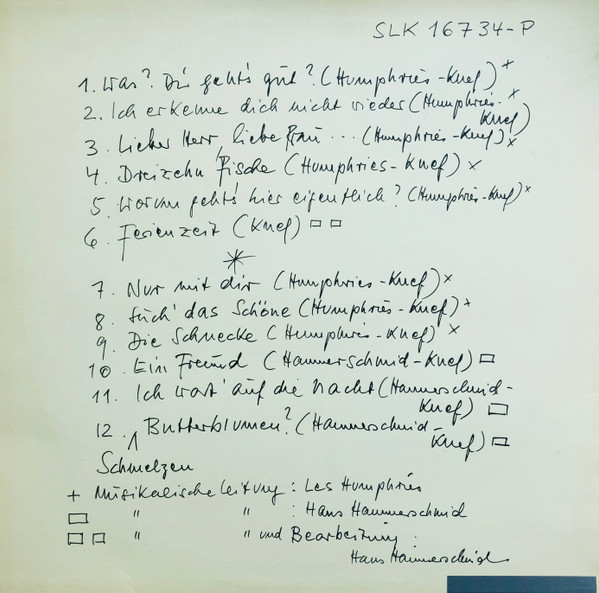 SLK 16734-P
1. Was? Dir geht's gut? (Humphries-Knef) +
2. Ich erkenne dich nicht wieder (Humphries- x
Knef)
3. Lieber Herr, liebe Frau ... (Humphries-Knef) x
4. Dreizehn Fische (Humphries-Knef) x
5. Worum geht's hier eigentlich? (Humphries-Knef) x
6. Ferienzeit (Knef) □ □
*
7. Nur mit dir (Humphries-Knef) x
8. Such' das Schöne (Humphries-Knef) +
9. Die Schnecke (Humphries-Knef) x
10. Ein Freund (Hammerschmid-Knef) □
11. Ich wart' auf die Nacht (Hammerschmid-
Knef) □
12. Butterblumen? (Hammerschmid-
Knef) □
Schmelzen
+ Musikalische Leitung: Les Humphries
□ " " : Hans Hammerschmid
□ □ " " und Bearbeitung:
Hans Hammerschmid